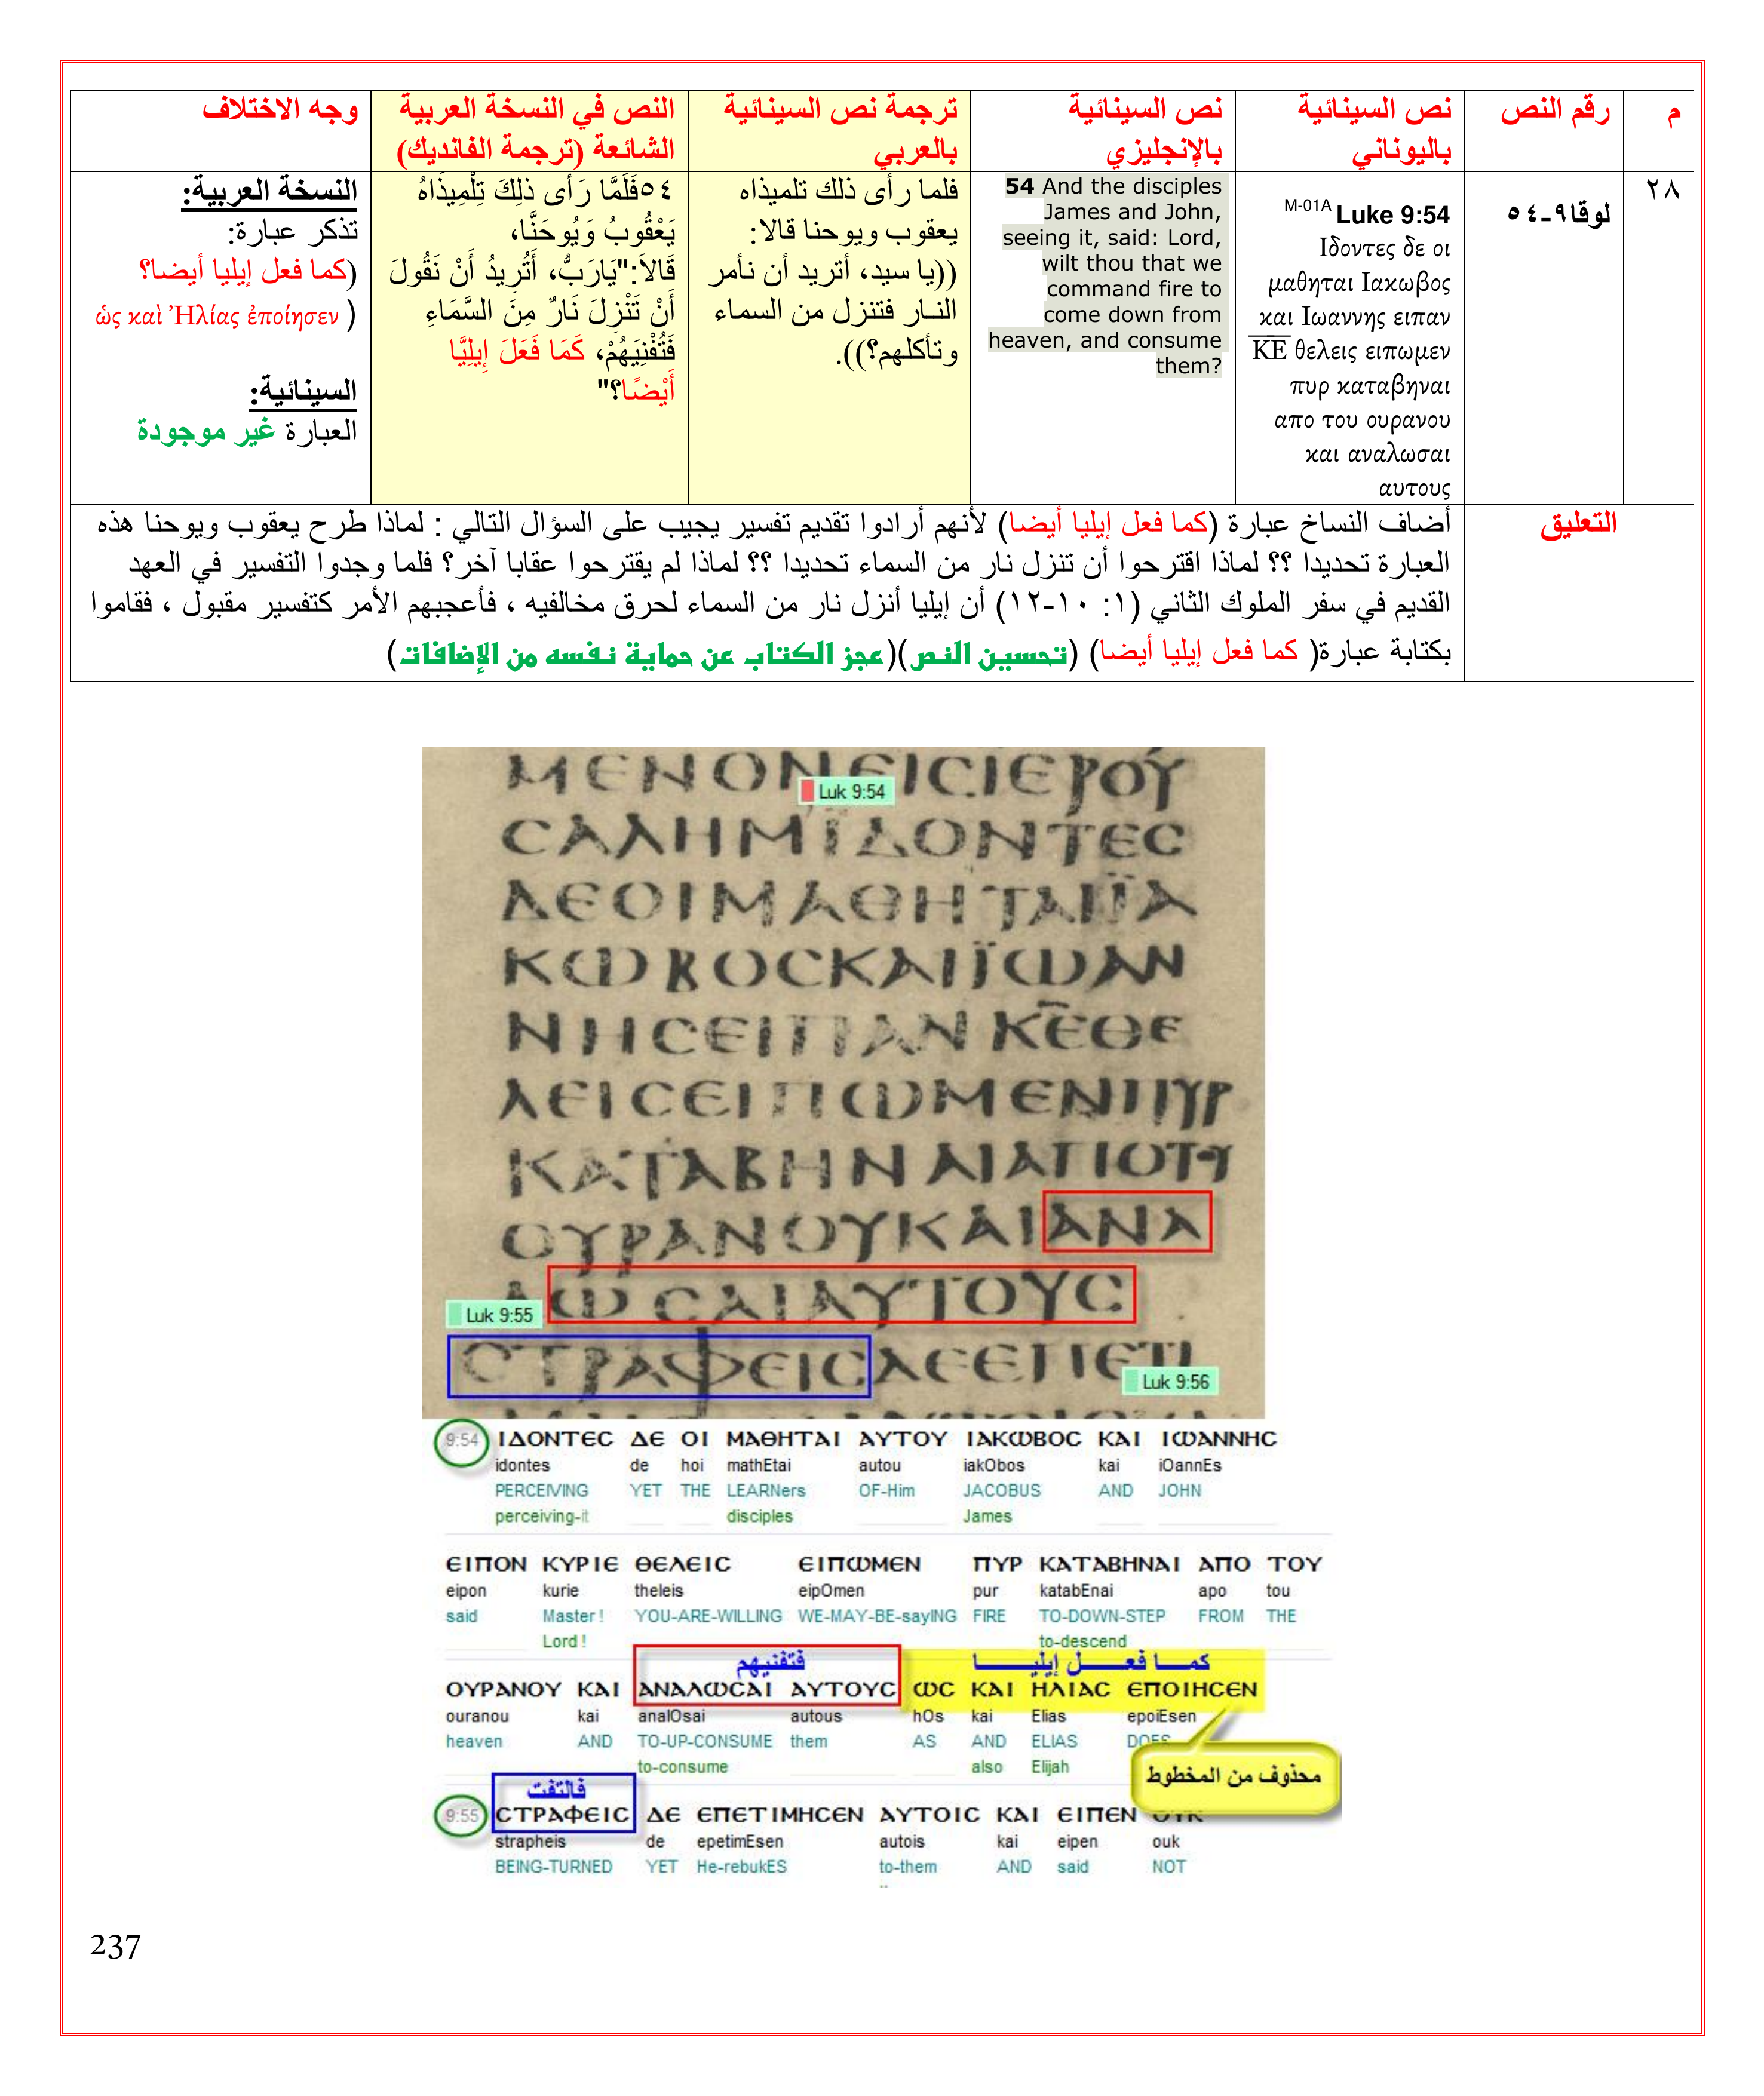 م
رقم النص
نص السينائية
باليوناني
نص السينائية
بالإنجليزي
ترجمة نص السينائية
بالعربي
النص في النسخة العربية
الشائعة (ترجمة الفانديك)
وجه الاختلاف
٢٨
لوقا٩-٥٤
M-01A Luke 9:54
Ιδοντες δε οι
μαθηται Ιακωβος
και Ιωαννης ειπαν
ΚΕ θελεις ειπωμεν
πυρ καταβηναι
απο του ουρανου
και αναλωσαι
αυτους
54 And the disciples
James and John,
seeing it, said: Lord,
wilt thou that we
command fire to
come down from
heaven, and consume
them?
فلما رأى ذلك تلميذاه
يعقوب ويوحنا قالا:
((يا سيد، أتريد أن نأمر
النار فتنزل من السماء
وتأكلهم؟)).
٥٤فَلَمَّا رَأَى ذلِكَ تِلْمِيذَاهُ
يَعْقُوبُ وَيُوحَنَّا،
قَالاَ:"يَارَبُّ، أَتُرِيدُ أَنْ نَقُولَ
أَنْ تَنْزِلَ نَارٌ مِنَ السَّمَاءِ
فَتُفْنِيَهُمْ، كَمَا فَعَلَ إِيلِيَّا
أَيْضًا؟"
النسخة العربية:
تذكر عبارة:
(كما فعل إيليا أيضا؟
ὡς καὶ Ἠλίας ἐποίησεν )
السينائية:
العبارة غير موجودة
التعليق
أضاف النساخ عبارة (كما فعل إيليا أيضا) لأنهم أرادوا تقديم تفسير يجيب على السؤال التالي : لماذا طرح يعقوب ويوحنا هذه
العبارة تحديدا ؟؟ لماذا اقترحوا أن تنزل نار من السماء تحديدا ؟؟ لماذا لم يقترحوا عقابا آخر؟ فلما وجدوا التفسير في العهد
القديم في سفر الملوك الثاني (١: ١٠-١٢) أن إيليا أنزل نار من السماء لحرق مخالفيه ، فأعجبهم الأمر كتفسير مقبول ، فقاموا
بكتابة عبارة( كما فعل إيليا أيضا) (تحسين النص)(عجز الكتاب عن حماية نفسه من الإضافات)
ΜΕΝΟΝΕΙϹΙΕΡΟΥ
Luk 9:54
ϹΑΛΗΜΪΔΟΝΤΕϹ
ΔΕΟΙΜΑΘΗΤΑΙΪΑ
ΚΩΒΟϹΚΑΙΪΩΑΝ
ΝΗϹΕΙΠΑΝΚΕΘΕ
ΛΕΙϹΕΙΠΩΜΕΝΠΥΡ
ΚΑΤΑΒΗΝΑΙΑΠΟΤΥ
ΟΥΡΑΝΟΥΚΑΙΑΝΑ
ΛΩϹΑΙΑΥΤΟΥϹ
Luk 9:55
ϹΤΡΑΦΕΙϹΔΕΕΠΕΤΙ
Luk 9:56
9:54 ΙΔΟΝΤΕϹ ΔΕ ΟΙ ΜΑΘΗΤΑΙ ΑΥΤΟΥ ΙΑΚΩΒΟϹ ΚΑΙ ΙΩΑΝΝΗϹ
idontes de hoi mathEtai autou iakObos kai iOannEs
PERCEIVING YET THE LEARNers OF-Him JACOBUS AND JOHN
perceiving-it disciples James
ΕΙΠΟΝ ΚΥΡΙΕ ΘΕΛΕΙϹ ΕΙΠΩΜΕΝ ΠΥΡ ΚΑΤΑΒΗΝΑΙ ΑΠΟ ΤΟΥ
eipon kurie theleis eipOmen pur katabEnai apo tou
said Master ! YOU-ARE-WILLING WE-MAY-BE-sayING FIRE TO-DOWN-STEP FROM THE
Lord ! to-descend
فتفنيهم كما فعل إيليا
ΟΥΡΑΝΟΥ ΚΑΙ ΑΝΑΛΩϹΑΙ ΑΥΤΟΥϹ ΩϹ ΚΑΙ ΗΛΙΑϹ ΕΠΟΙΗϹΕΝ
ouranou kai analOsai autous hOs kai Elias epoiEsen
heaven AND TO-UP-CONSUME them AS AND ELIAS DOES
to-consume also Elijah
محذوف من المخطوط
فالتفت
9:55 ϹΤΡΑΦΕΙϹ ΔΕ ΕΠΕΤΙΜΗϹΕΝ ΑΥΤΟΙϹ ΚΑΙ ΕΙΠΕΝ ΟΥΚ
strapheis de epetimEsen autois kai eipen ouk
BEING-TURNED YET He-rebukES to-them AND said NOT
237